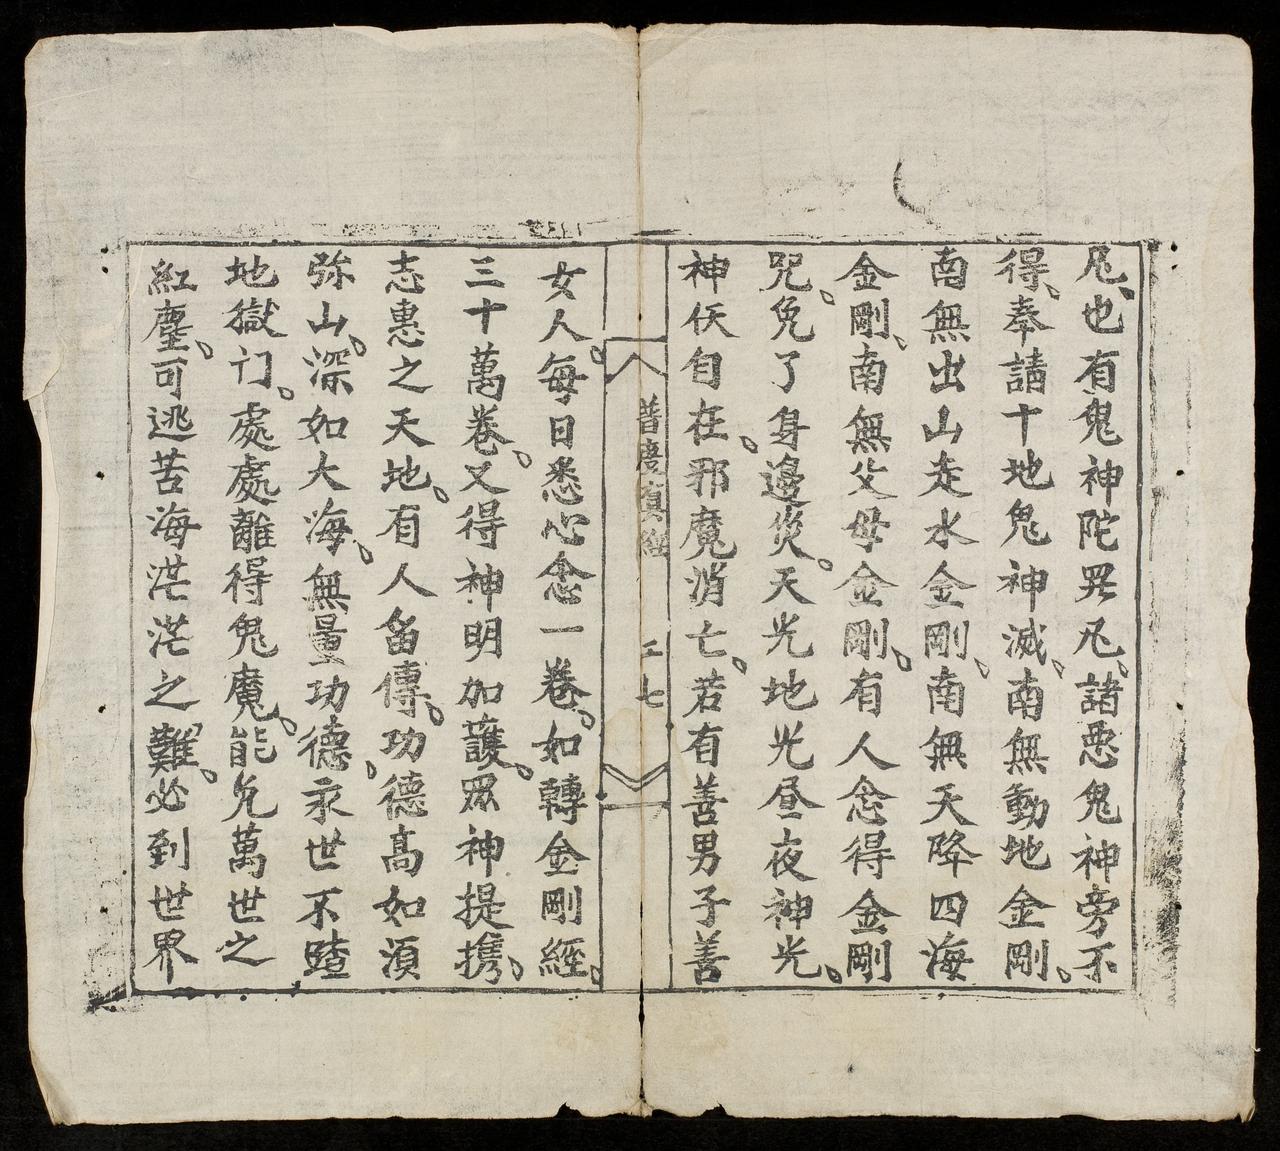 凡也有鬼神陀羅凡諸惡鬼神旁不
得奉請十地鬼神滅南無動地金剛
南無出山走水金剛南無天降四海
金剛南無父母金剛有人念得金剛
咒免了身邊災天光地光昼夜神光
神仸自在邪魔消亡若有善男子善
普度真經
七
女人每日悉心念一卷如轉金剛經
三十萬卷又得神明加護眾神提携
志惠之天地有人畨傳功德髙如湏
弥山深如大海無量功德永世不
地獄门處處離得鬼魔能免萬世之
紅塵可逃苦海茫茫之難必到世界